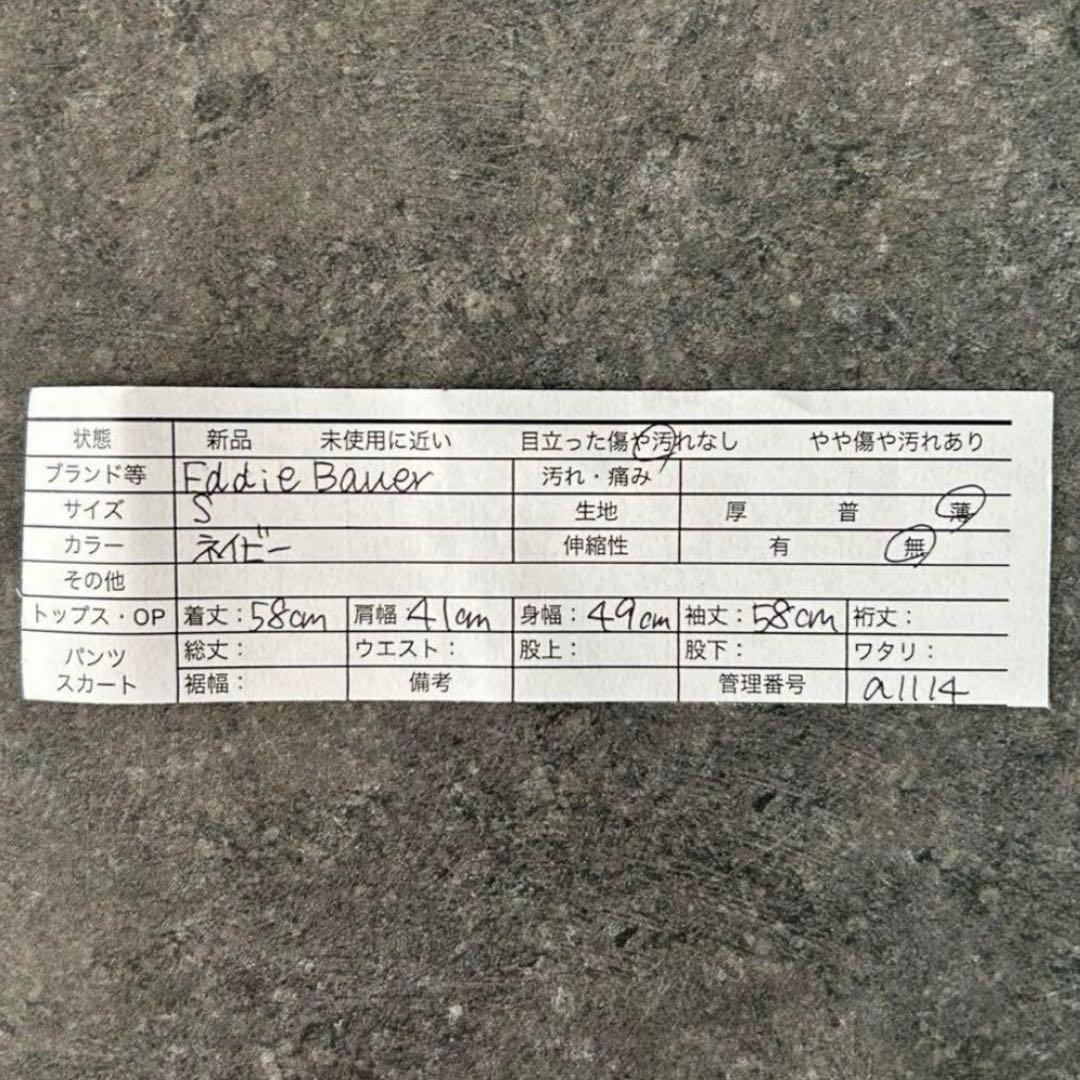 状態 新品 未使用に近い 目立った傷や汚れなし やや傷や汚れあり
ブランド等 Eddie Bauer 汚れ・痛み
サイズ S 生地 厚 普 薄
カラー ネイビー 伸縮性 有 無
その他
トップス・OP 着丈:58cm 肩幅 41cm 身幅:49cm 袖丈:58cm 裄丈:
パンツ スカート 総丈: ウエスト: 股上: 股下: ワタリ:
裾幅: 備考 管理番号 a1114